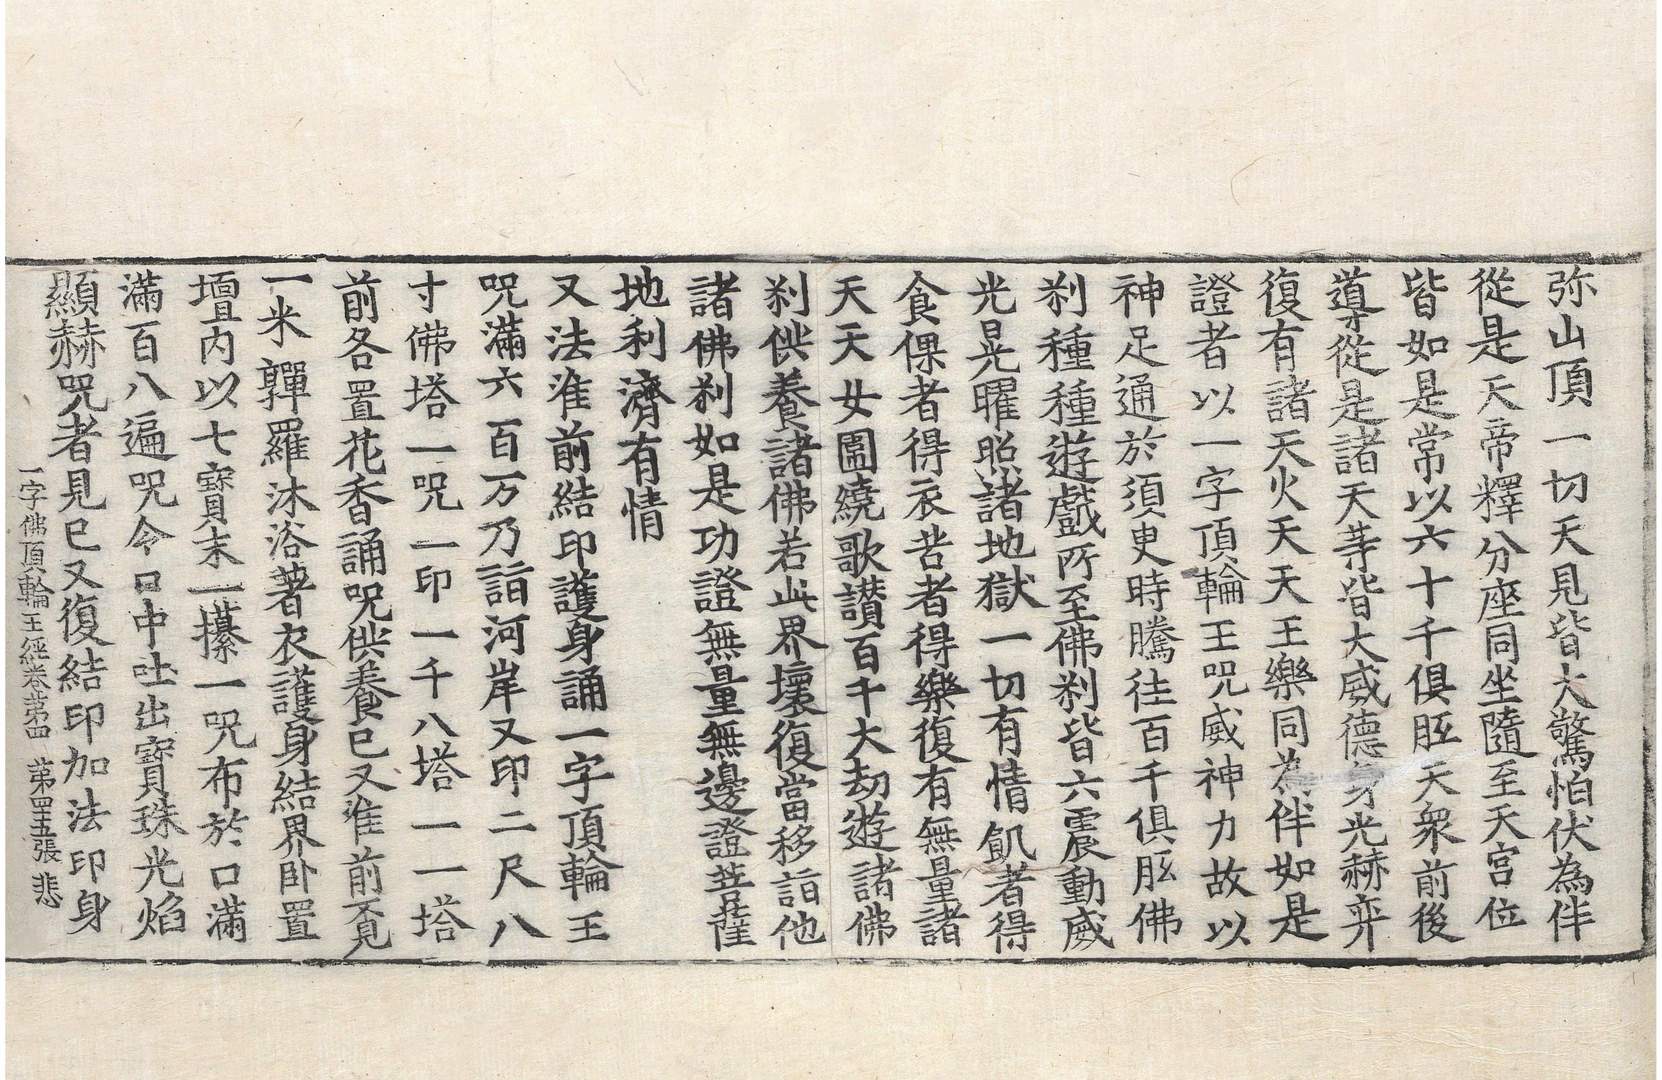 弥山頂一切天見皆大驚怕伏為伴
從是天帝釋分座同坐隨至天宮位
皆如是常以六十千俱胝天衆前後
導從是諸天等皆大威德身光赫弈
復有諸天火天天王樂同為伴如是
證者以一字頂輪王呪威神力故以
神足通於須臾時騰往百千俱胝佛
刹種種遊戲所至佛刹皆六震動威
光晃曜照諸地獄一切有情飢者得
食倮者得衣苦者得樂復有無量諸
天天女圍繞歌讃百千大劫遊諸佛
刹供養諸佛若此界壞復當移詣他
諸佛刹如是功證無量無邊證菩薩
地利濟有情
又法准前結印護身誦一字頂輪王
呪滿六百万乃詣河岸又印二尺八
寸佛塔一呪一印一千八塔一一塔
前各置花香誦呪供養已又准前覓
一米嚲羅沐浴著衣護身結界卧置
壇內以七寶末一攥一呪布於口滿
滿百八遍呪令口中吐出寶珠光焰
顯赫呪者見已又復結印加法印身
一字佛頂輪王經卷第四 第四十五張 悲